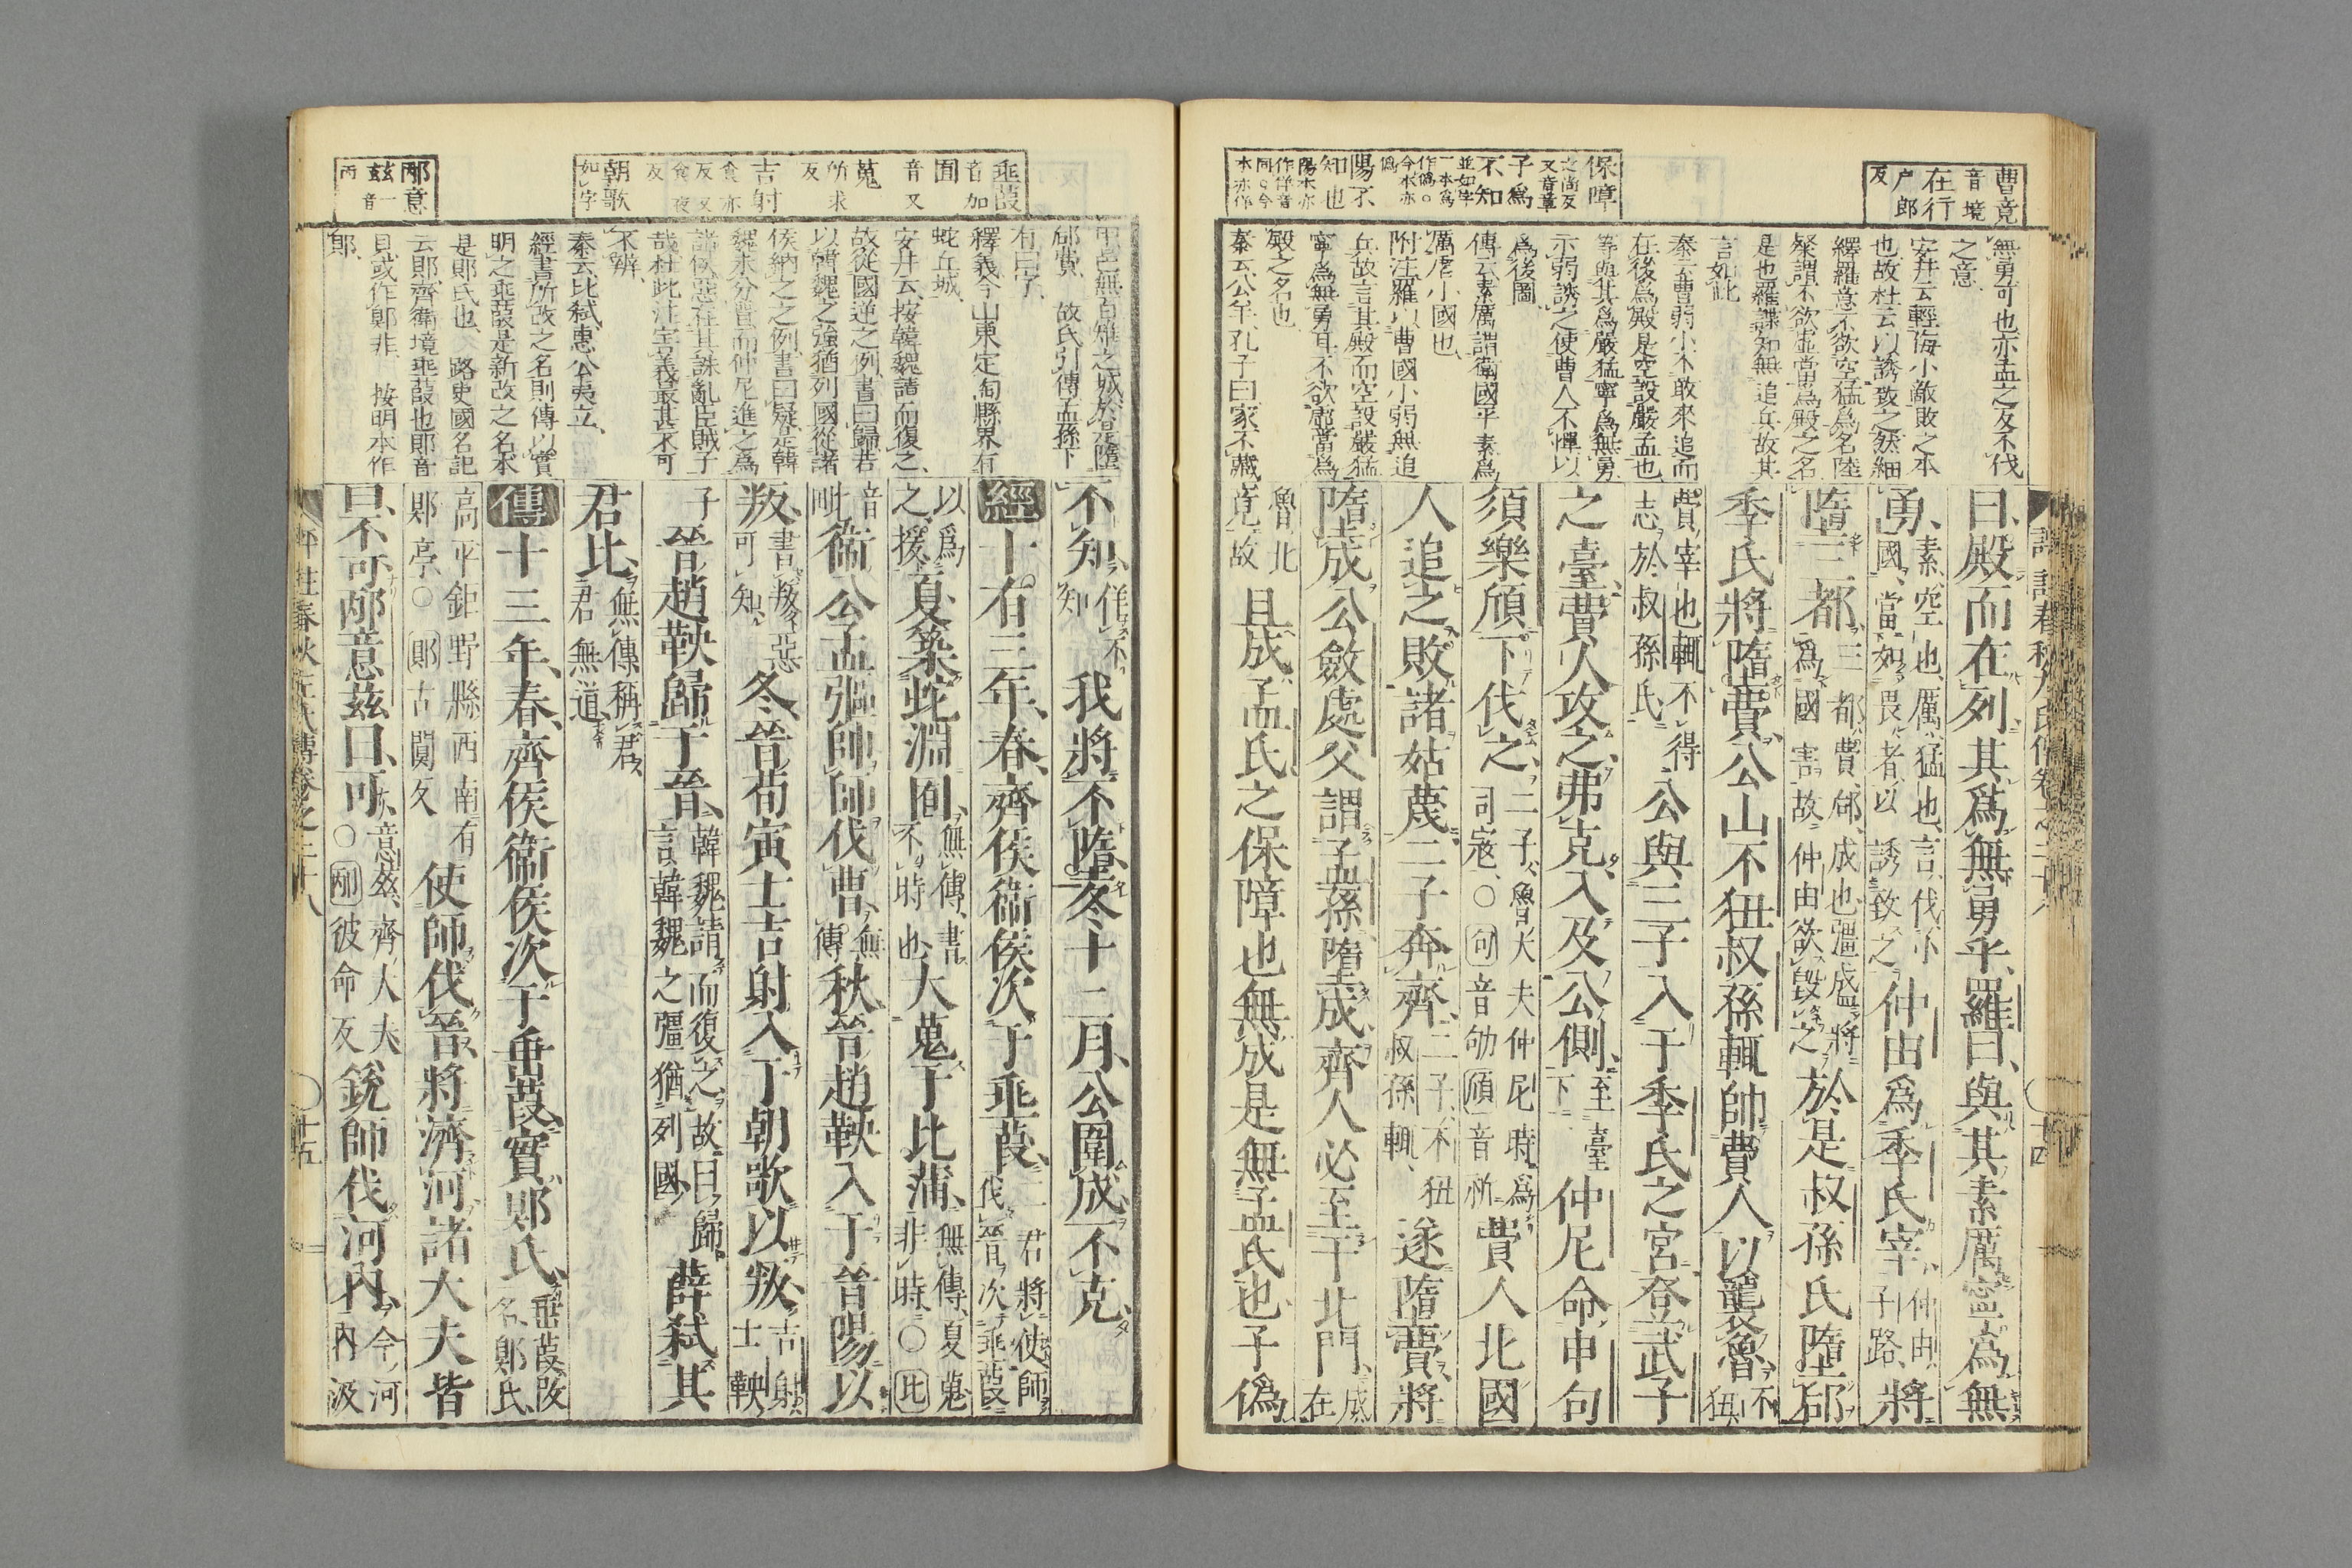 曹竟
音境
在行
戸郎
反
保障
之尚反
又音章
子爲
不知
並如字
一本爲
作僞○
今本亦
僞
陽不
知也
陽本亦
作佯音
同〻今
本亦作
無勇可也亦孟之反不伐
之意
安井云輕侮小敵敗之本
也故杜云以誘致之然細
繹羅意不欲空猛爲名陸
粲謂不欲虛當爲殿之名
是也羅諜知無追兵故其
言如此
秦云曹弱小不敢來追而
在後爲殿是空設嚴孟也
等與其爲嚴猛寧爲無勇
示弱誘之使曹人不憚以
爲後圖
傳云素厲謂衛國平素爲
厲虐小國也
附注羅以曹國小弱無追
兵故言其殿而空設嚴猛
寧爲無勇耳不欲虛當爲
殿之名也
秦云公羊孔子曰家不藏
曰殿而在列其爲無勇乎羅曰與其素厲寧爲無
勇素空也厲猛也言伐小國當如畏者以誘致之仲由爲季氏宰仲由子路將
墮三都三都費郈成也彊盛將爲國害故仲由欲毀之於是叔孫氏墮郈
季氏將墮費公山不狃叔孫輒帥費人以襲魯不狃
費宰也輒不得志於叔孫氏公與三子入于季氏之宮登武子
之臺費人攻之弗克入及公側至臺下仲尼命申句
須樂頎下伐之二子魯大夫仲尼時爲司寇○句音劬頎音祈費人北國
人追之敗諸姑蔑二子奔齊二子不狃叔孫輒遂墮費將
墮成公斂處父謂孟孫墮成齊人必至于北門成在
魯北竟故且成孟氏之保障也無成是無孟氏也子僞
十四
垂葭
音加
囿
音又
蒐
所求
反
吉射
食亦
反又
食夜
反
朝歌
如字
邴意
玆音一
丙
甲邑無百雉之城於是墮
郈費　故氏引傳孟孫下
有曰字
釋義今山東定陶縣界有
蛇丘城
安井云按韓魏請而復之
故從國逆之例書曰歸若
以韓魏之強猶列國從諸
侯納之之例書曰疑是韓
魏未分晉而仲尼進之爲
諸侯惡在其誅亂臣賊子
哉杜此注害義最甚不可
不辨
秦云比弒惠公夷立
經書所改之名則傳以實
明之垂葭是新改之名本
是郹氏也　路史國名記
云郹齊衛境垂葭也郹音
狊或作鄓非　按明本作
郹
不知佯不知我將不墮冬十二月公圍成不克
經十有三年春齊侯衞侯次于垂葭二君將使師伐晉次垂葭
以爲之援夏築蛇淵囿無傳書不時也大蒐于比蒲無傳夏蒐非時○比
音毗衞公孟彄帥師伐曹無傳秋晉趙鞅入于晉陽以
叛書叛惡可知冬晉荀寅士吉射入于朝歌以叛吉射士鞅
子晉趙鞅歸于晉韓魏請而復之故曰歸言韓魏之彊猶列國薛弒其
君比無傳稱君君無道
傳十三年春齊侯衞侯次于垂葭實郹氏垂葭改名郹氏
高平鉅野縣西南有郹亭○郹古闃反使師伐晉將濟河諸大夫皆
曰不可邴意玆曰可意玆齊大夫○邴彼命反銳師伐河內今河內汲
春秋左氏傳卷之二十八
十五